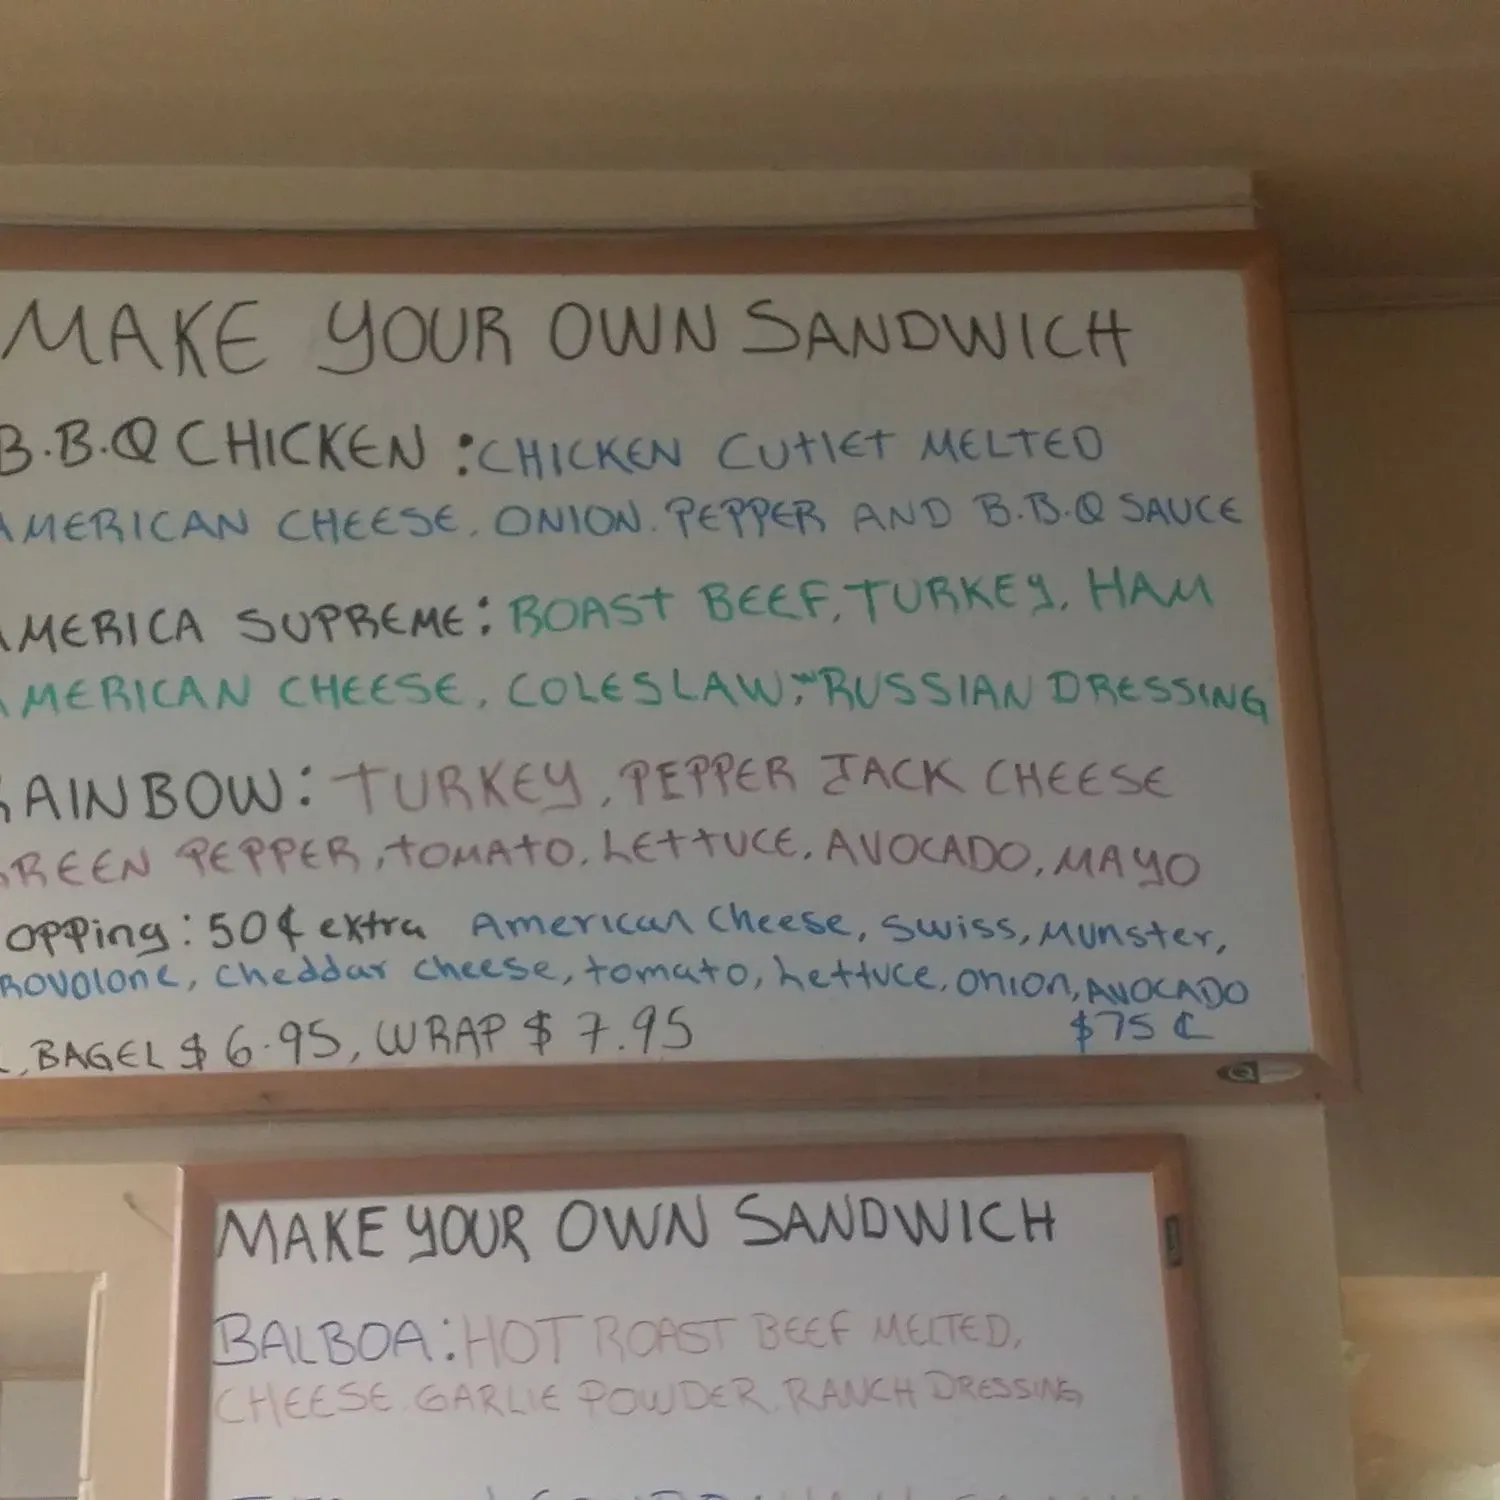 MAKE YOUR OWN SANDWICH
B.B.Q CHICKEN : CHICKEN CUTLET MELTED
AMERICAN CHEESE, ONION. PEPPER AND B.B.Q SAUCE
AMERICA SUPREME: ROAST BEEF, TURKEY, HAM
AMERICAN CHEESE, COLESLAW, RUSSIAN DRESSING
RAINBOW: TURKEY, PEPPER JACK CHEESE
GREEN PEPPER, TOMATO, LETTUCE, AVOCADO, MAYO
opping: 50¢ extra American cheese, swiss, Munster,
Provolone, cheddar cheese, tomato, Lettuce, onion, AVOCADO
$75 ¢
, BAGEL $ 6.95, WRAP $ 7.95
MAKE YOUR OWN SANDWICH
BALBOA: HOT ROAST BEEF MELTED,
CHEESE. GARLIE POWDER. RANCH DRESSING